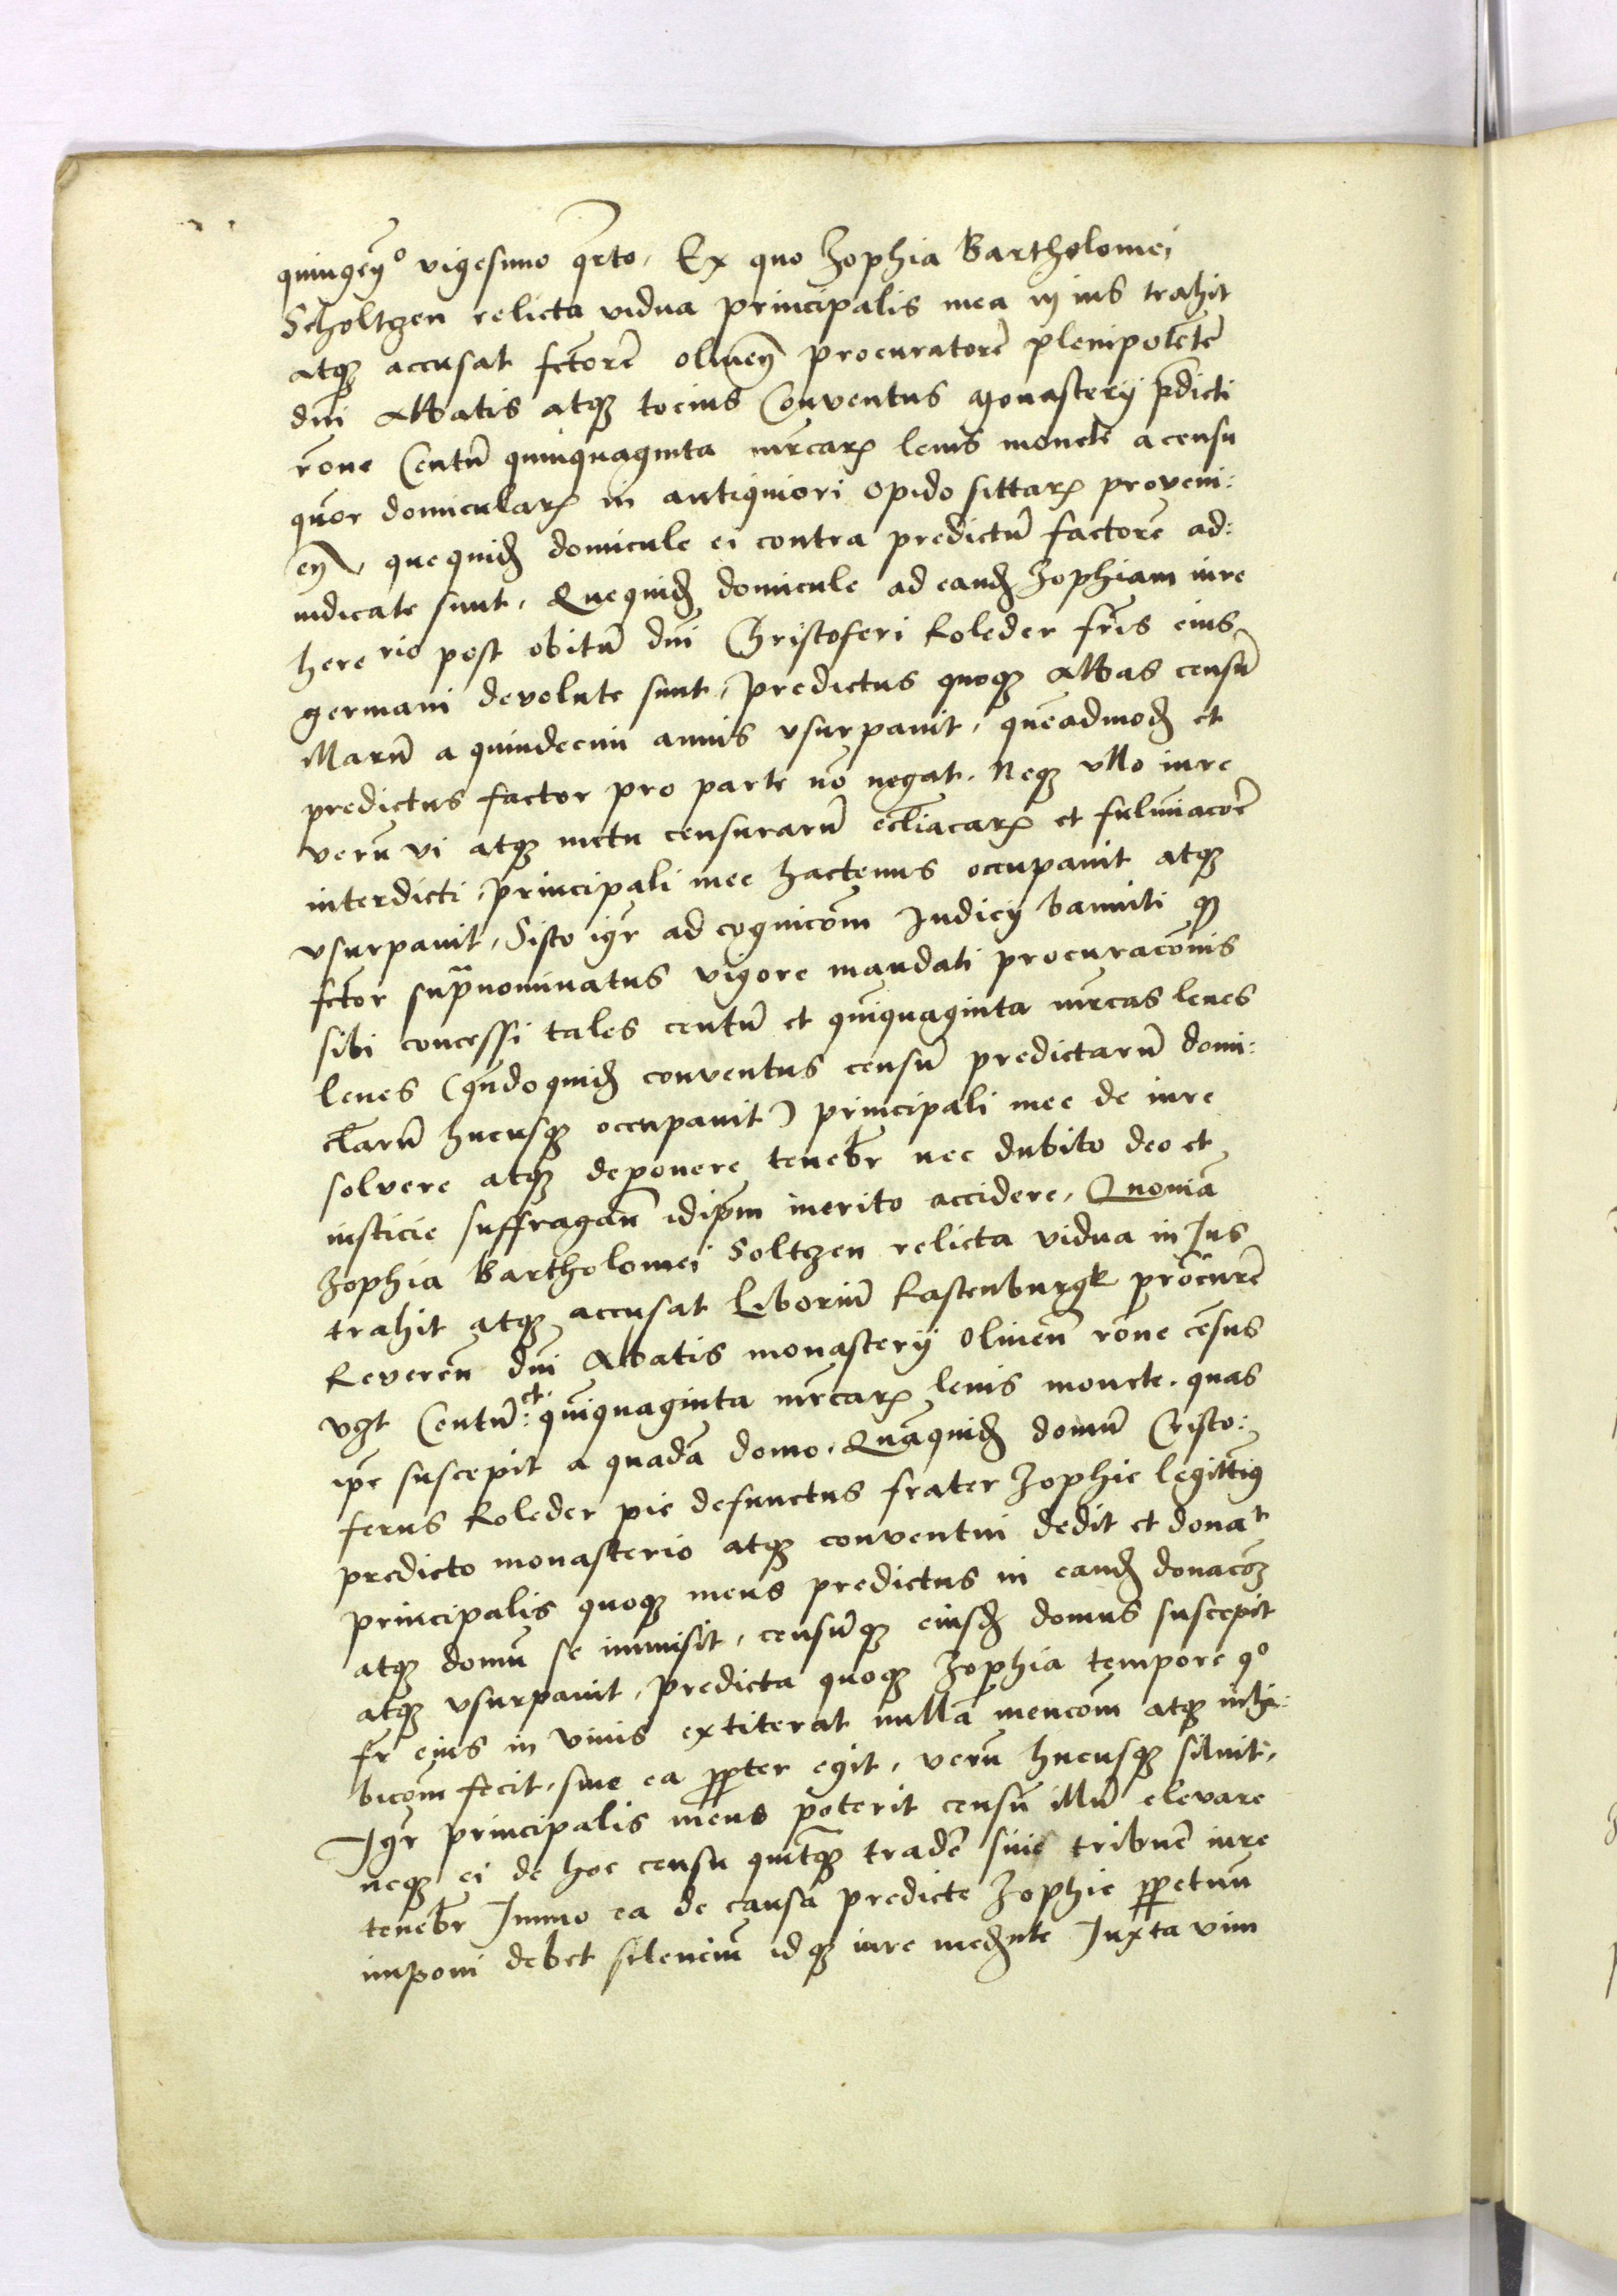 quingen̄º vigesimo qrto, Ex quo Zophia Bartholomei
Scholtzen relicta vidua principalis mea in ius trahit
atqꝫ accusat fctorē oliuen̄ procuratorē plenipotētē
dn̄i Abbatis atqꝫ tocius Conventus monasterij p̄dicti
rōne Centū quinquaginta mrcarꝝ levis monete a censu
quor domicularꝝ in antiquiori opido sittarꝝ proveni:
en̄, quequidꝫ domicule ei contra predictū factorē ad:
iudicate sunt, Quequidꝫ domicule ad eandꝫ Zophiam iure
here rio post obitū dn̄i Christoferi Roleder fr̄is eius
germani devolute sunt, predictus quoqꝫ Abbas censū
illarū a quindecim annis vsurpauit, quēadmodꝫ et
predictus factor pro parte nō negat, Neqꝫ vllo iure
verū vi atqꝫ metu censurarū eccl̄iacarꝝ et fulmiacōe
interdicti, principali mee hactenus occupauit atqꝫ
vsurpauit, Sisto igr̄ ad cognicōm Iudicij banniti qꝫ
fctor supranominatus vigore mandati procuracōnis
sibi concessi tales centū et quīquaginta mrcas leves
leves (qn̄doquidꝫ conventus censū predictarū domi:
clarū hucusqꝫ occupauit) principali mee de iure
solvere atqꝫ deponere tenebr̄ nec dubito deo et
iusticie suffragan̄ idip̄m merito accidere, Quoniā
Zophia Bartholomei Soltzen relicta vidua in Ius
trahit atqꝫ accusat Liborium Rastenburgk procurē
Reveren̄ dn̄i Abbatis monasterij Oliuen̄ rōne cēsus
vꝫt Centū: et quīquaginta mrcarꝝ levis monete, quas
ip̄e suscepit a quadā domo, Quāquidꝫ domū Cristo:
ferus Roleder pie defunctus frater Zophie legittiꝰ
predicto monasterio atqꝫ conventui dedit et donat
principalis quoqꝫ meus predictus in eandꝫ donacōꝫ
atqꝫ domū se inmisit, censūqꝫ eiusdꝫ domus suscepit
atqꝫ vsurpauit, predicta quoqꝫ Zophia tempore qº
fr̄ eius in viuis extiterat nullā mencōm atqꝫ inhi:
bicōm fecit, siue ea ꝓpter egit, verū hucusqꝫ siluit,
Igr̄ principalis meus poterit censū illū elevare
neqꝫ ei de hoc censu quitqꝫ tradē siue tribuē iure
tenebr̄ Immo ea de causa predicte Zophie ꝑpetuū
imponi debet silenciū idqꝫ iure medꝫnte Iuxta vim